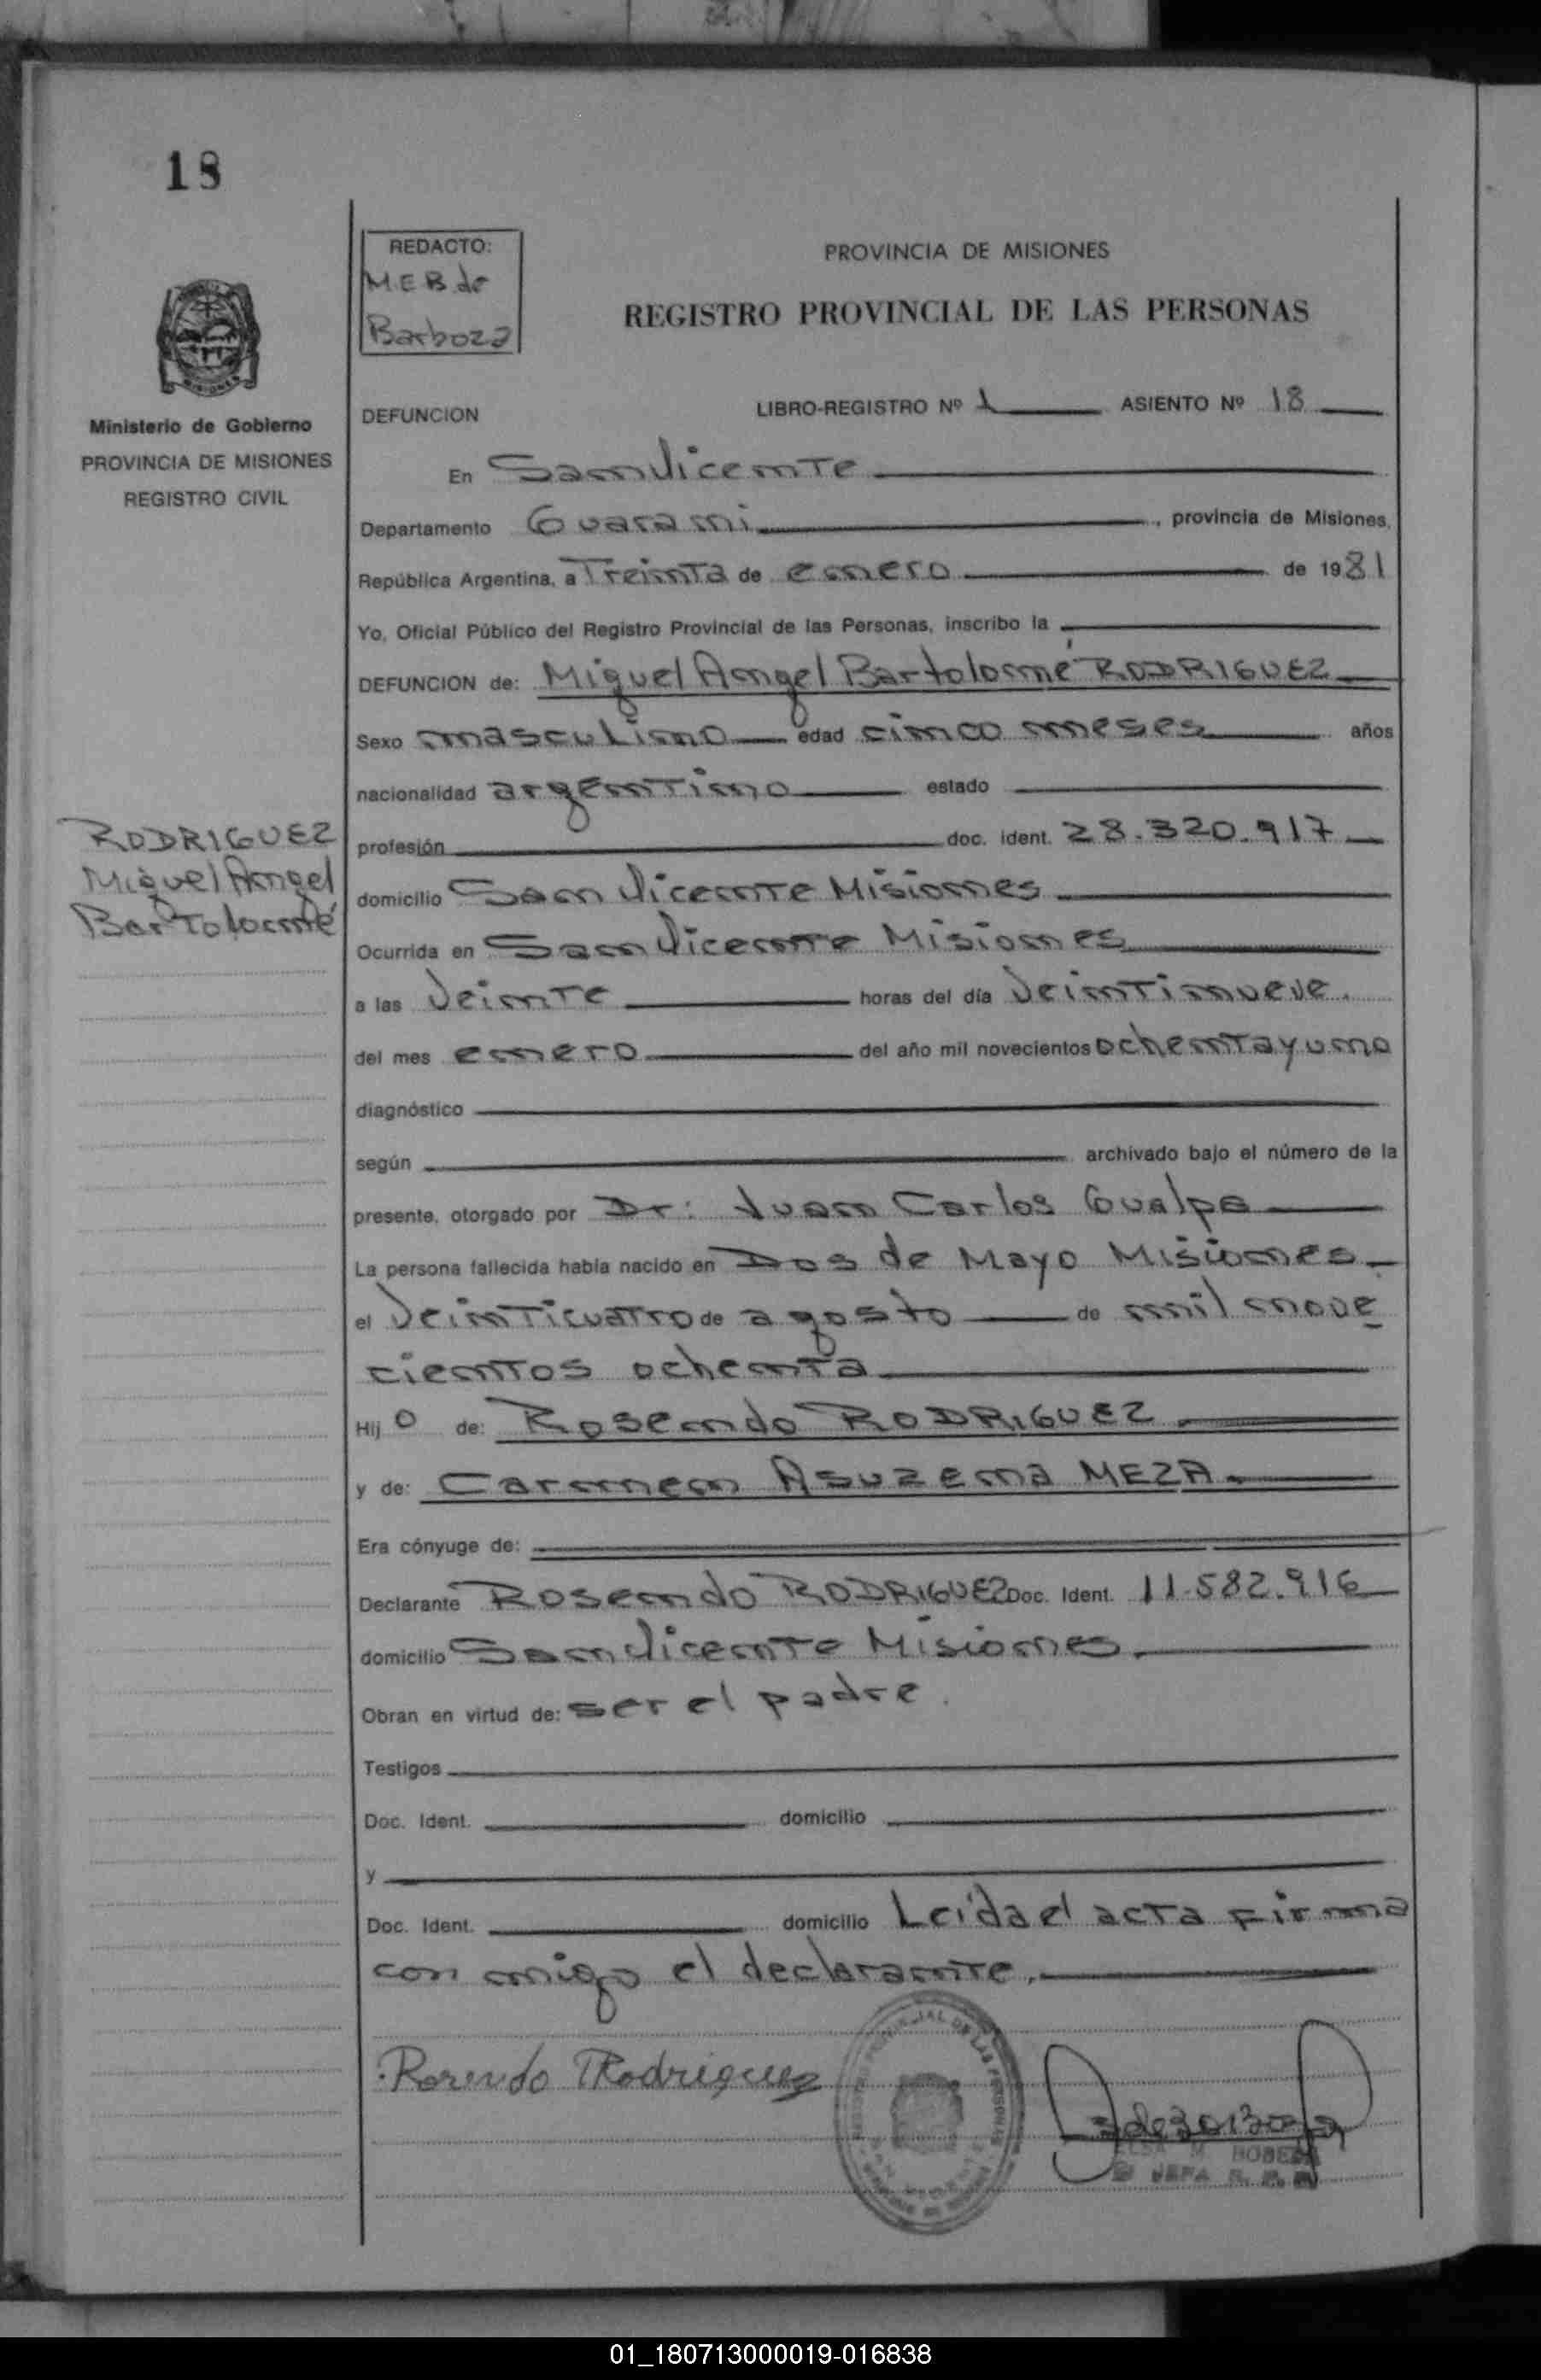 18
REDACTO:
M.E.B de
Barboza
PROVINCIA DE MISIONES
REGISTRO PROVINCIAL DE LAS PERSONAS
Ministerio de Gobierno
PROVINCIA DE MISIONES
REGISTRO CIVIL
DEFUNCION LIBRO-REGISTRO Nº 1 ASIENTO Nº 18
En San Vicente
Departamento Guarani, provincia de Misiones,
República Argentina, a Treinta de enero de 1981
Yo, Oficial Público del Registro Provincial de las Personas, inscribo la
DEFUNCION de: Miguel Angel Bartolomé RODRIGUEZ
Sexo masculino edad cinco meses años
nacionalidad argentino estado
RODRIGUEZ
Miguel Angel
Bartolomé
profesión doc. ident. 28.320.917
domicilio San Vicente Misiones
Ocurrida en San Vicente Misiones
a las Veinte horas del día Veintinueve.
del mes enero del año mil novecientos ochentayuno
diagnóstico
según archivado bajo el número de la
presente, otorgado por Dr: Juan Carlos Gualpa
La persona fallecida había nacido en Dos de Mayo Misiones
el Veinticuatro de agosto de mil nove
cientos ochenta
Hijo de: Rosendo RODRIGUEZ.
y de: Carmen Asuzena MEZA.
Era cónyuge de:
Declarante Rosendo RODRIGUEZ Doc. Ident. 11.582.916
domicilio San Vicente Misiones.
Obran en virtud de: ser el padre.
Testigos
Doc. Ident. domicilio
y
Doc. Ident. domicilio Leida el acta firma
con migo el declarante.
Rosendo Rodriguez
01_180713000019-016838